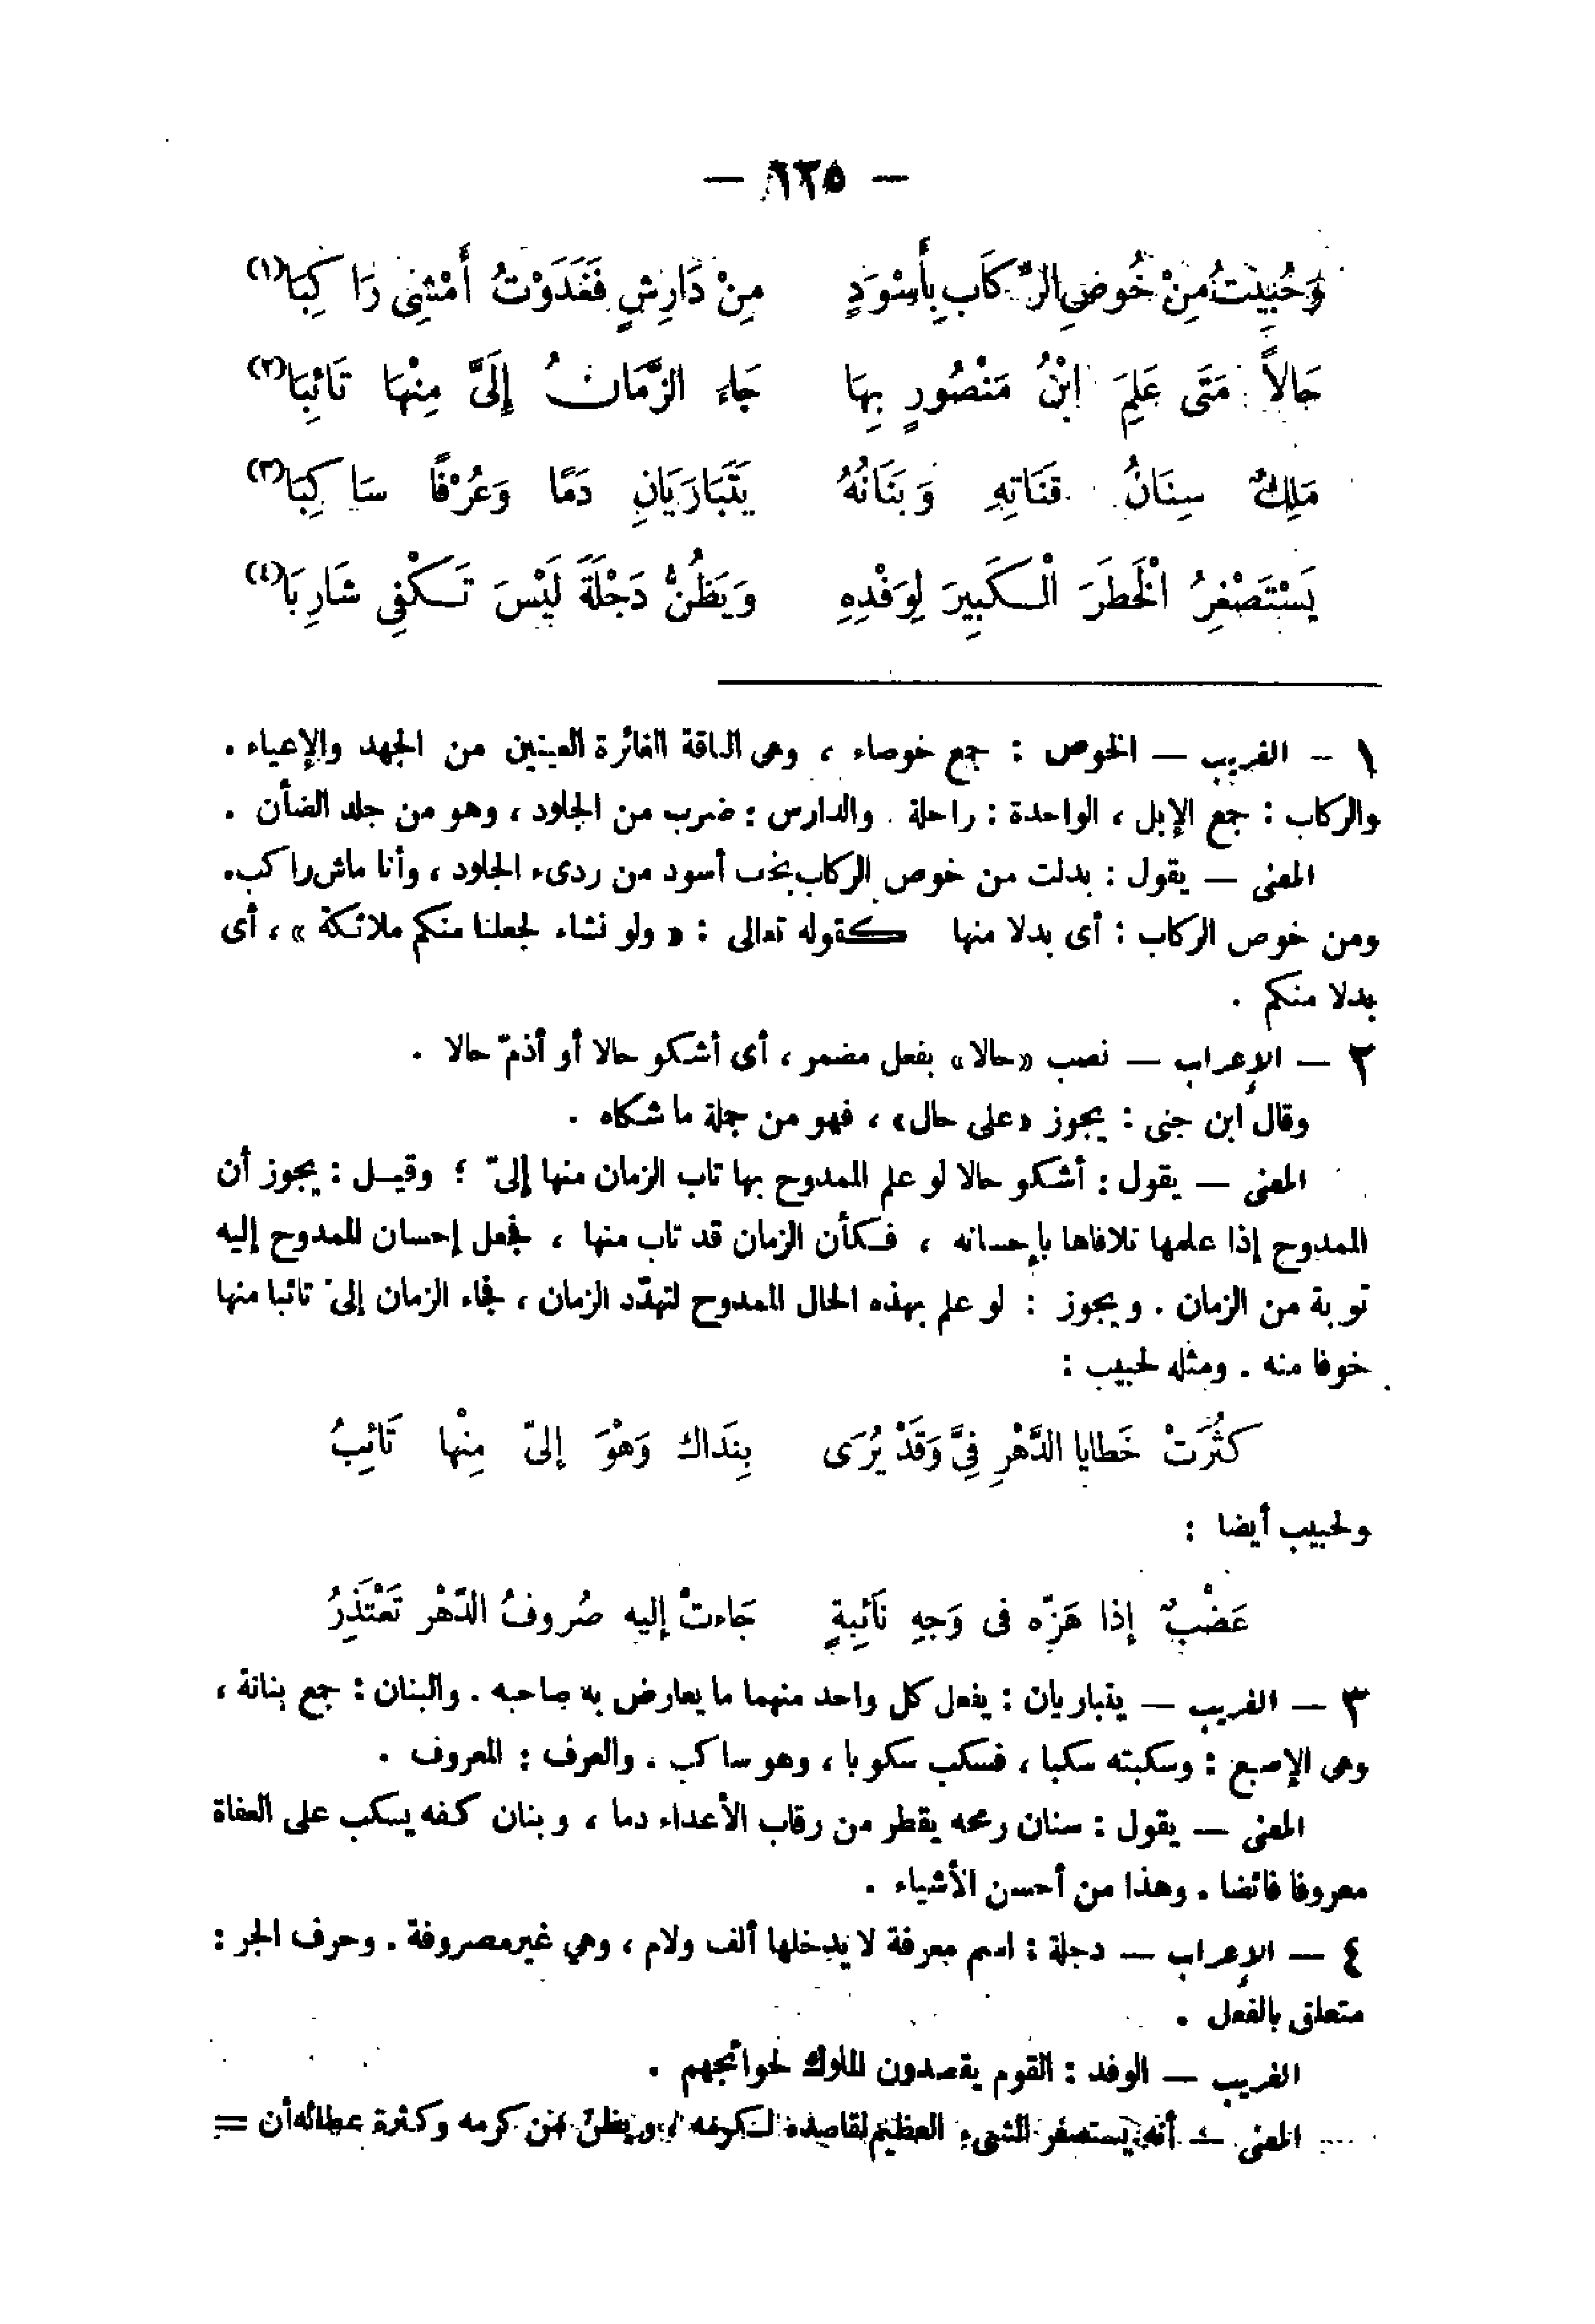 — ١٢٥ —
وَحُبِيتُ مِنْ خُوصِ الرِّكَابِ بِأَسْوَدٍ مِنْ دَارِشٍ فَغَدَوْتُ أَمْشِى رَاكِبَا(١)
حَالاً مَتَى عَلِمَ ابْنُ مَنْصُورٍ بِهَا جَاءَ الزَّمَانُ إِلَىَّ مِنْهَا تَائِبَا(٢)
مَلِكٌ سِنَانُ قَنَاتِهِ وَبَنَانُهُ يَتَبَارَيَانِ دَمًا وَعُرْفًا سَاكِبَا(٣)
يَسْتَصْغِرُ الْخَطَرَ الْكَبِيرَ لِوَفْدِهِ وَيَظُنُّ دَجْلَةَ لَيْسَ تَكْفِى شَارِبَا(٤)
١ - الغريب — الخوص : جمع خوصاء ، وهى الناقة الغائرة العينين من الجهد والإعياء .
والركاب : جمع الإبل ، الواحدة : راحلة . والدارس : ضرب من الجلود ، وهو من جلد الضأن .
المعنى — يقول : بدلت من خوص الركاب بخف أسود من ردىء الجلود ، وأنا ماش راكب.
ومن خوص الركاب : أى بدلا منها كقوله تعالى : « ولو نشاء لجعلنا منكم ملائكة » ، أى
بدلا منكم .
٢ — الإعراب — نصب «حالا» بفعل مضمر ، أى أشكو حالا أو أذمّ حالا .
وقال ابن جنى : يجوز «على حال» ، فهو من جملة ما شكاه .
المعنى — يقول : أشكو حالا لو علم الممدوح بها تاب الزمان منها إلىّ ؛ وقيل : يجوز أن
الممدوح إذا علمها تلافاها بإحسانه ، فكأن الزمان قد تاب منها ، فجعل إحسان الممدوح إليه
توبة من الزمان . ويجوز : لو علم بهذه الحال الممدوح لتهدّد الزمان ، فجاء الزمان إلىّ تائبا منها
خوفا منه . ومثله لحبيب :
كثُرَتْ خَطايا الدَّهْرِ فِىَّ وَقَدْ يُرَى بِنَداك وَهْوَ إلىّ مِنْها تَائِبُ
ولحبيب أيضا :
عَضْبٌ إذا هَزّه فى وَجهِ نَائِبةٍ جَاءتْ إليه صُروفُ الدّهْر تَعْتَذِرُ
٣ — الغريب — يتباريان : يفعل كل واحد منهما ما يعارض به صاحبه . والبنان : جمع بنانة ،
وهى الإصبع : وسكبته سكبا ، فسكب سكوبا ، وهو ساكب . والعرف : المعروف .
المعنى — يقول : سنان رمحه يقطر من رقاب الأعداء دما ، وبنان كفه يسكب على العفاة
معروفا فائضا . وهذا من أحسن الأشياء .
٤ — الإعراب — دجلة : اسم معرفة لا يدخلها ألف ولام ، وهي غير مصروفة . وحرف الجر :
متعلق بالفعل .
الغريب — الوفد : القوم يقصدون الملوك لحوائجهم .
المعنى — أنه يستصغر الشىء العظيم لقاصده لكرمه ، ويظنّ من كرمه وكثرة عطائه أن =